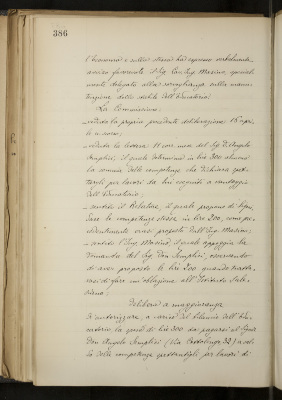 386
l'economia e nella stessa ha espresso verbalmente
avviso favorevole il Sig. Cav. Ing. Masino, special
mente delegato alla sorveglianza sulla manu
tenzione dello stabile dell'Educatorio;
La Commissione;
veduta la propria precedente deliberazione 18 apri
le u. scorso;
veduta la lettera 11 corr. mese del Sig. D. Angelo
Semplici, il quale determina in lire 300 almeno
la somma delle competenze che dichiara spet
targli per lavori da lui eseguiti a vantaggio
dell'Educatorio;
sentito il Relatore, il quale propone di liqui
dare le competenze stesse in lire 200, come pre
cedentemente erasi proposto dall'Ing. Masino;
sentito l'Ing. Masino, il quale appoggia la
domanda del Sig. Don Semplici, osservando
di aver proposto le lire 200 quando tratta
vasi di fare un'oblazione all'Istituto Sale
siano;
Delibera a maggioranza
di autorizzare, a carico del bilancio dell'Edu
catorio, la spesa di lire 300 da pagarsi al Signor
Don Angelo Semplici (Via Cottolengo 32) a sal
do delle competenze spettantigli per lavori di